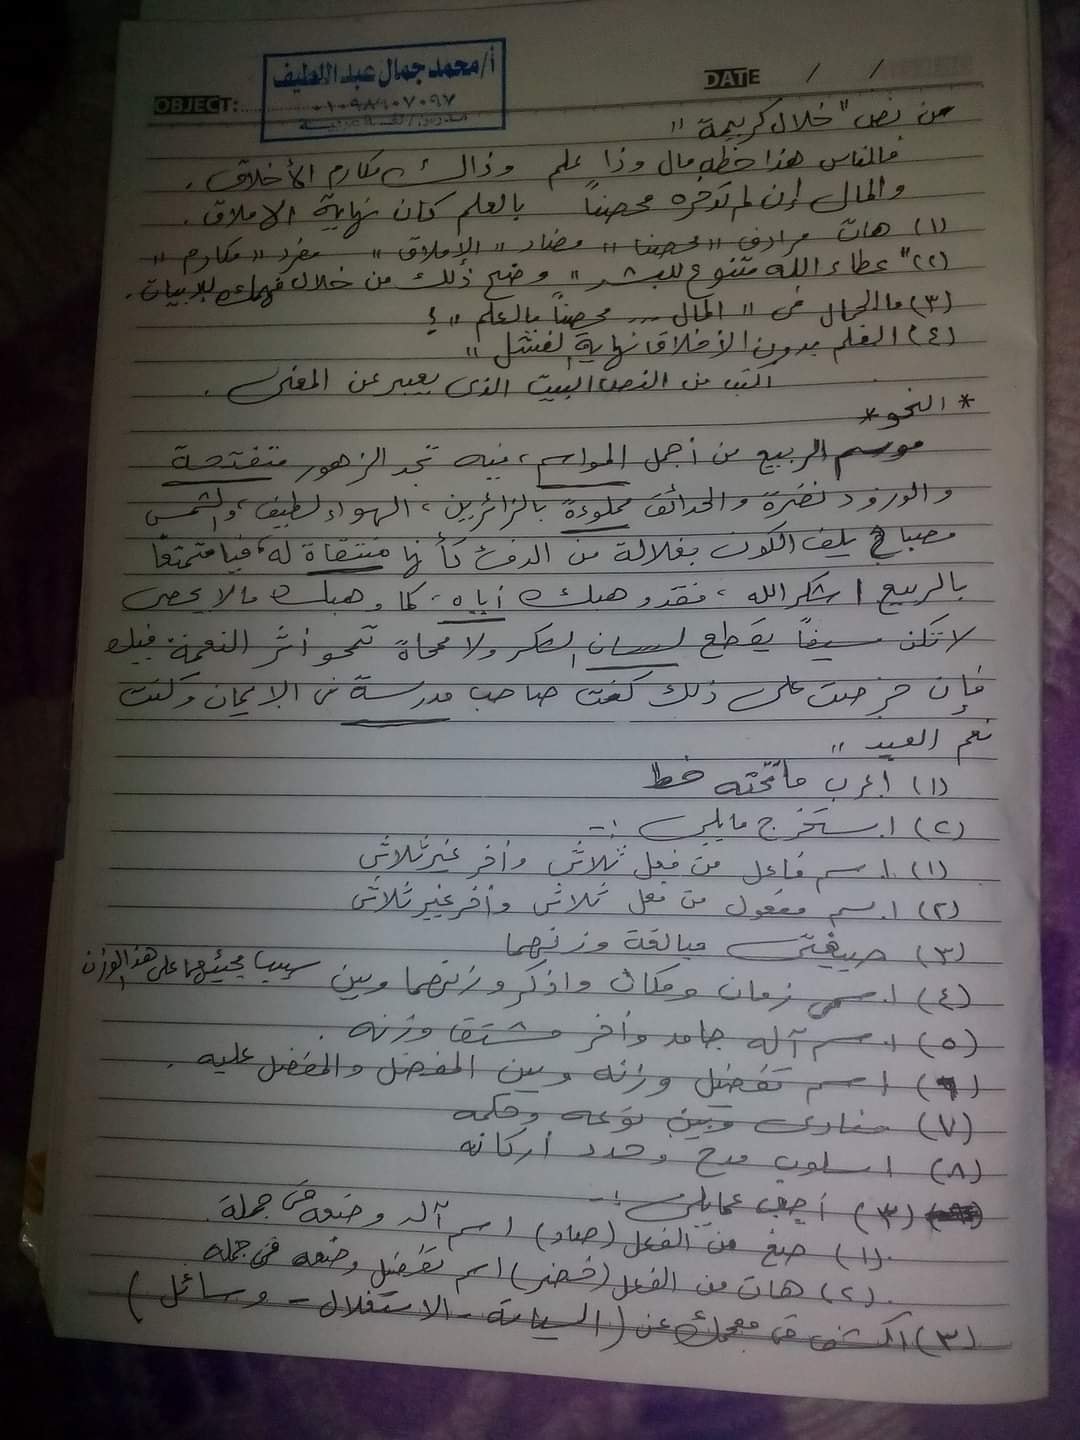 أ/محمد جمال عبد اللطيف
DATE / /
OBJECT:
من نص "خلال كريمة"
فالناس هذا حظه مال وذا علم وذاك مكارم الأخلاق.
والمال إن لم تدخره محصناً بالعلم كان نهاية الإملاق.
(١) هات مرادف "محصنا" مضاد "الإملاق" مفرد "مكارم"
(٢) "عطاء الله متنوع للبشر" وضح ذلك من خلال فهمك للأبيات.
(٣) ما الجمال في "المال ... محصناً بالعلم"؟
(٤) العلم بدون الأخلاق نهايةالفشل"
اكتب من النص البيت الذى يعبر عن المعنى.
* النحو *
موسم الربيع من أجمل المواسم، فيه تجد الزهور متفتحة
والورود نضرة والحدائق مملوءة بالزائرين، الهواء لطيف، والشمس
مصباح يلف الكون بغلالة من الدفء كأنها منتقاة له، فيا متمتعًا
بالربيع اشكر الله، فقد وهبك أياه، كما وهبك مالا يحصى
لا تكن سيفاً يقطع لسان الشكر ولا ممحاة تمحو أثر النعمة فيك
فإن حرصت على ذلك كنت صاحب مدرسة فى الإيمان وكنت
نعم العبد"
(١) أعرب ما تحته خط
(٢) استخرج مايلى :-
(١) اسم فاعل من فعل ثلاثى وأخر غير ثلاثى
(٢) اسم مفعول من فعل ثلاثى وأخر غير ثلاثى
(٣) صيغتى مبالغة وزنهما
(٤) اسمى زمان ومكان واذكر وزنهما وبين سبب مجيئهما على هذا الوزن
(٥) اسم آله جامد وأخر مشتقا وزنه.
(٦) اسم تفضيل وزنه وبين المفضل والمفضل عليه.
(٧) منادى وبين نوعه وحكمه
(٨) اسلوب مدح وحدد أركانه
(٣) أجب عمايلى :-
(١) صغ من الفعل (صاد) اسم آلة وضعه فى جملة.
(٢) هات من الفعل (خضر) اسم تفضيل وضعه فى جملة.
(٣) اكشف فى معجمك عن (السياحة - الاستغلال - وسائل)